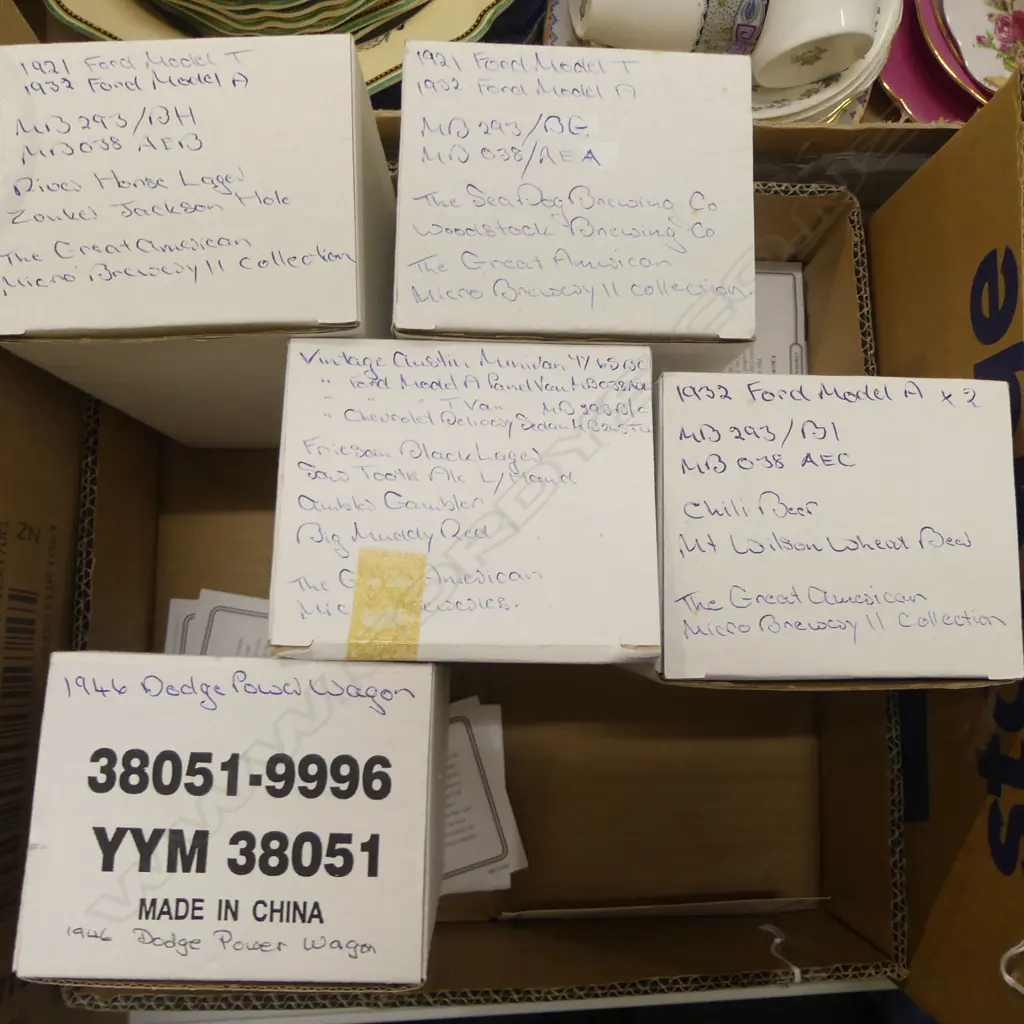 1921 Ford Model T
1932 Ford Model A
MB 293/BH
MB038 AEB
River Horse Lager
Zonker Jackson Hole
The Great American
Micro Brewery II Collection
1921 Ford Model T
1932 Ford Model A
MB 293/BG
MB 038/AEA
The SeaDog Brewing Co
Woodstock Brewing Co
The Great American
Micro Brewery II collection.
Vintage Austin Minivan YY65
" Ford Model A Panel Van
" " " T Van
" Chevrolet Delivery Sedan
Black Lager
Saw Tooth Ale L/Hand
Gambler
Big Muddy Red
The American
1932 Ford Model A x 2
MB 293/BI
MB 038 AEC
Chili Beer
Mt Wilson Wheat Beer
The Great American
Micro Brewery II Collection
1946 Dodge Power Wagon
38051-9996
YYM 38051
MADE IN CHINA
1946 Dodge Power Wagon